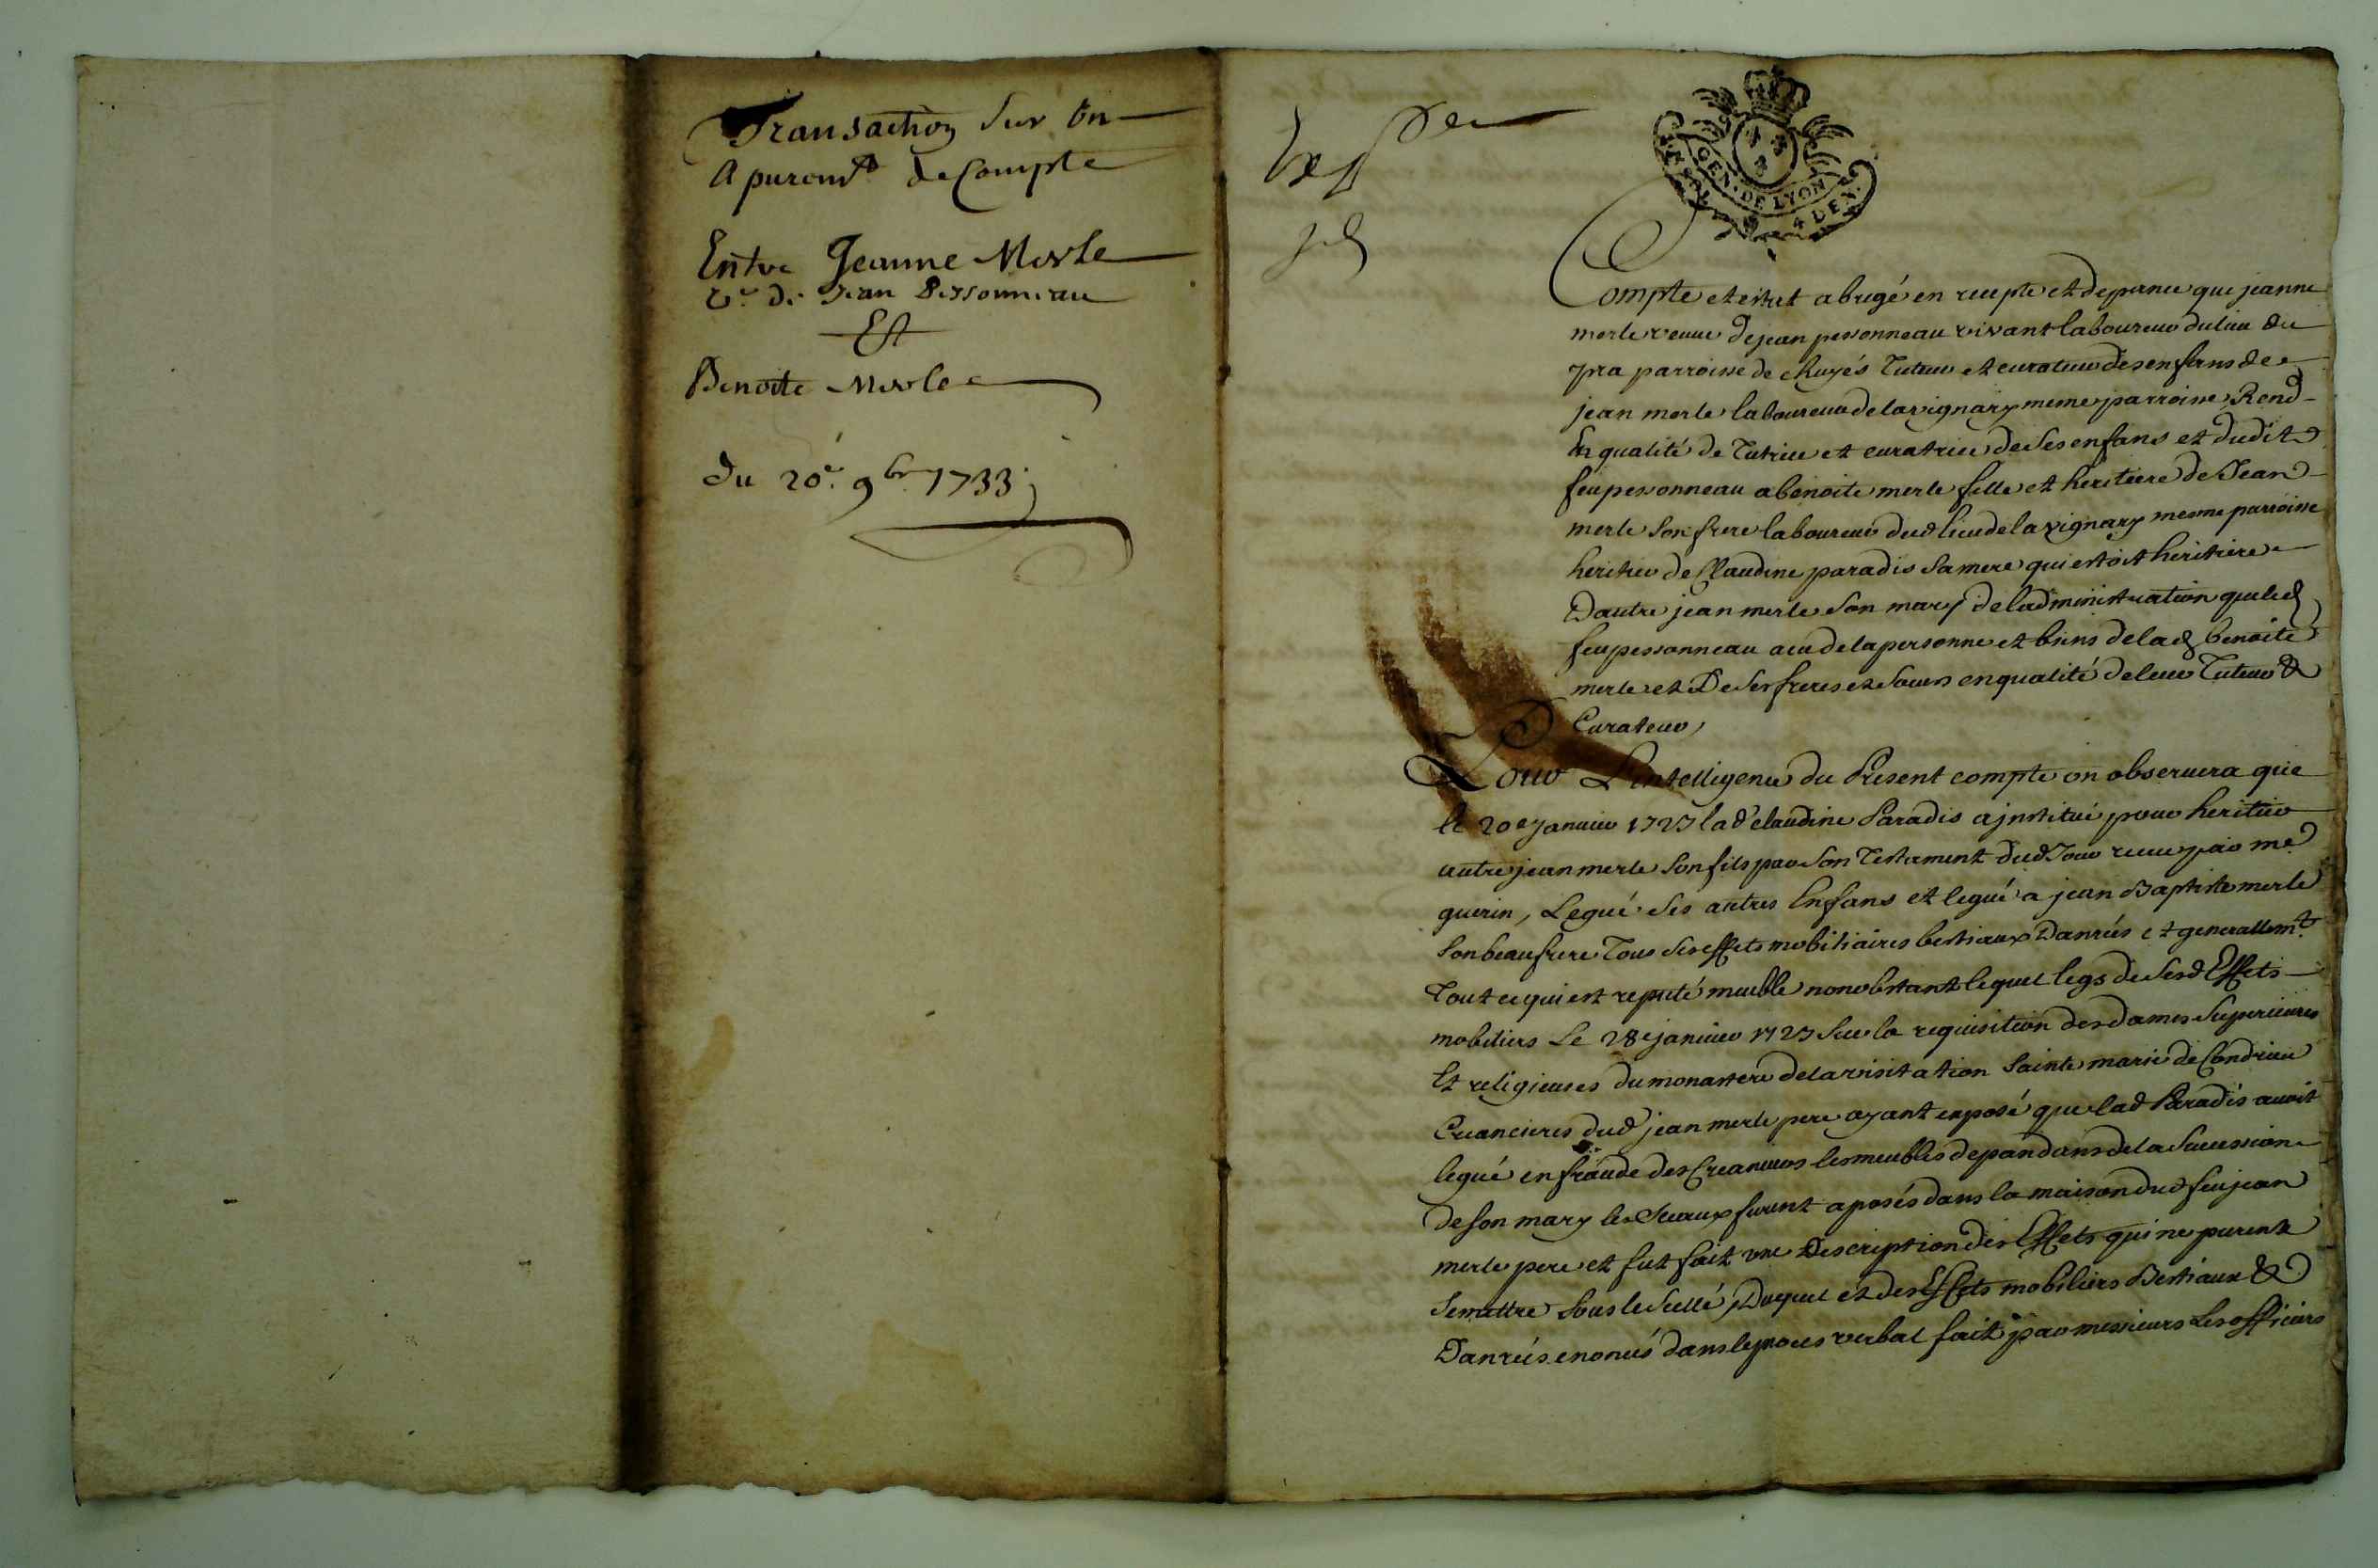 Transaction Sur Un
Apuremt de Compte
Entre Jeanne Merle
Ve de Jean Pessonneau
Et
Benoite Merle
du 20e. 9br 1733
GEN. DE LYON
4 DEN.
Compte et estat abregé en recepte et depence que jeanne
merle veuve de jean pessonneau vivant laboureur du lieu du
pra parroisse de chuyés Tuteur et curateur des enfans de
jean merle laboureur de la vignary meme parroisse, Rend
En qualité de Tutrice et curatrice de ses enfans et dudit
feu pessonneau a benoite merle fille et heritiere de Jean
merle son frere laboureur dud lieu de la vignary mesme parroisse
heritier de Claudine paradis sa mere qui estoit heritiere
Dautre jean merle son mary de ladministration que led
feu pessonneau a eu de la personne et biens de lad benoite
merle et De ses freres et soeurs en qualité de leur Tuteur &
Curateur,
Pour L'intelligence du Present compte on observera que
le 20e janvier 1727 lad claudine Paradis a institué pour heritier
autre jean merle son fils par son Testament dud Jour receu par me
guerin, Legué ses autres Enfans et legué a jean Baptiste merle
son beau frere Tous ses effets mobiliaires bestiaux Danrées et generallemt
Tout ce qui est reputé meuble nonobstant lequel legs de sesd Effets
mobiliers Le 28e janvier 1727 sur la requisition des dames Superieures
Et religieuses du monastere de la visitation Sainte marie de Condrieu
Creancieres dud jean merle pere ayant exposé que lad Paradis avoit
legué en fraude des Creanciers les meubles dependans de la Succession
de son mary les Sceaux furent aposés dans la maison dud feu jean
merle pere et fut fait une Description des Effets qui ne purent
se mettre sous le Scellé, Duquel et des Effets mobiliers Bestiaux &
Danrées enoncés dans le proces verbal fait par messieurs Les officiers